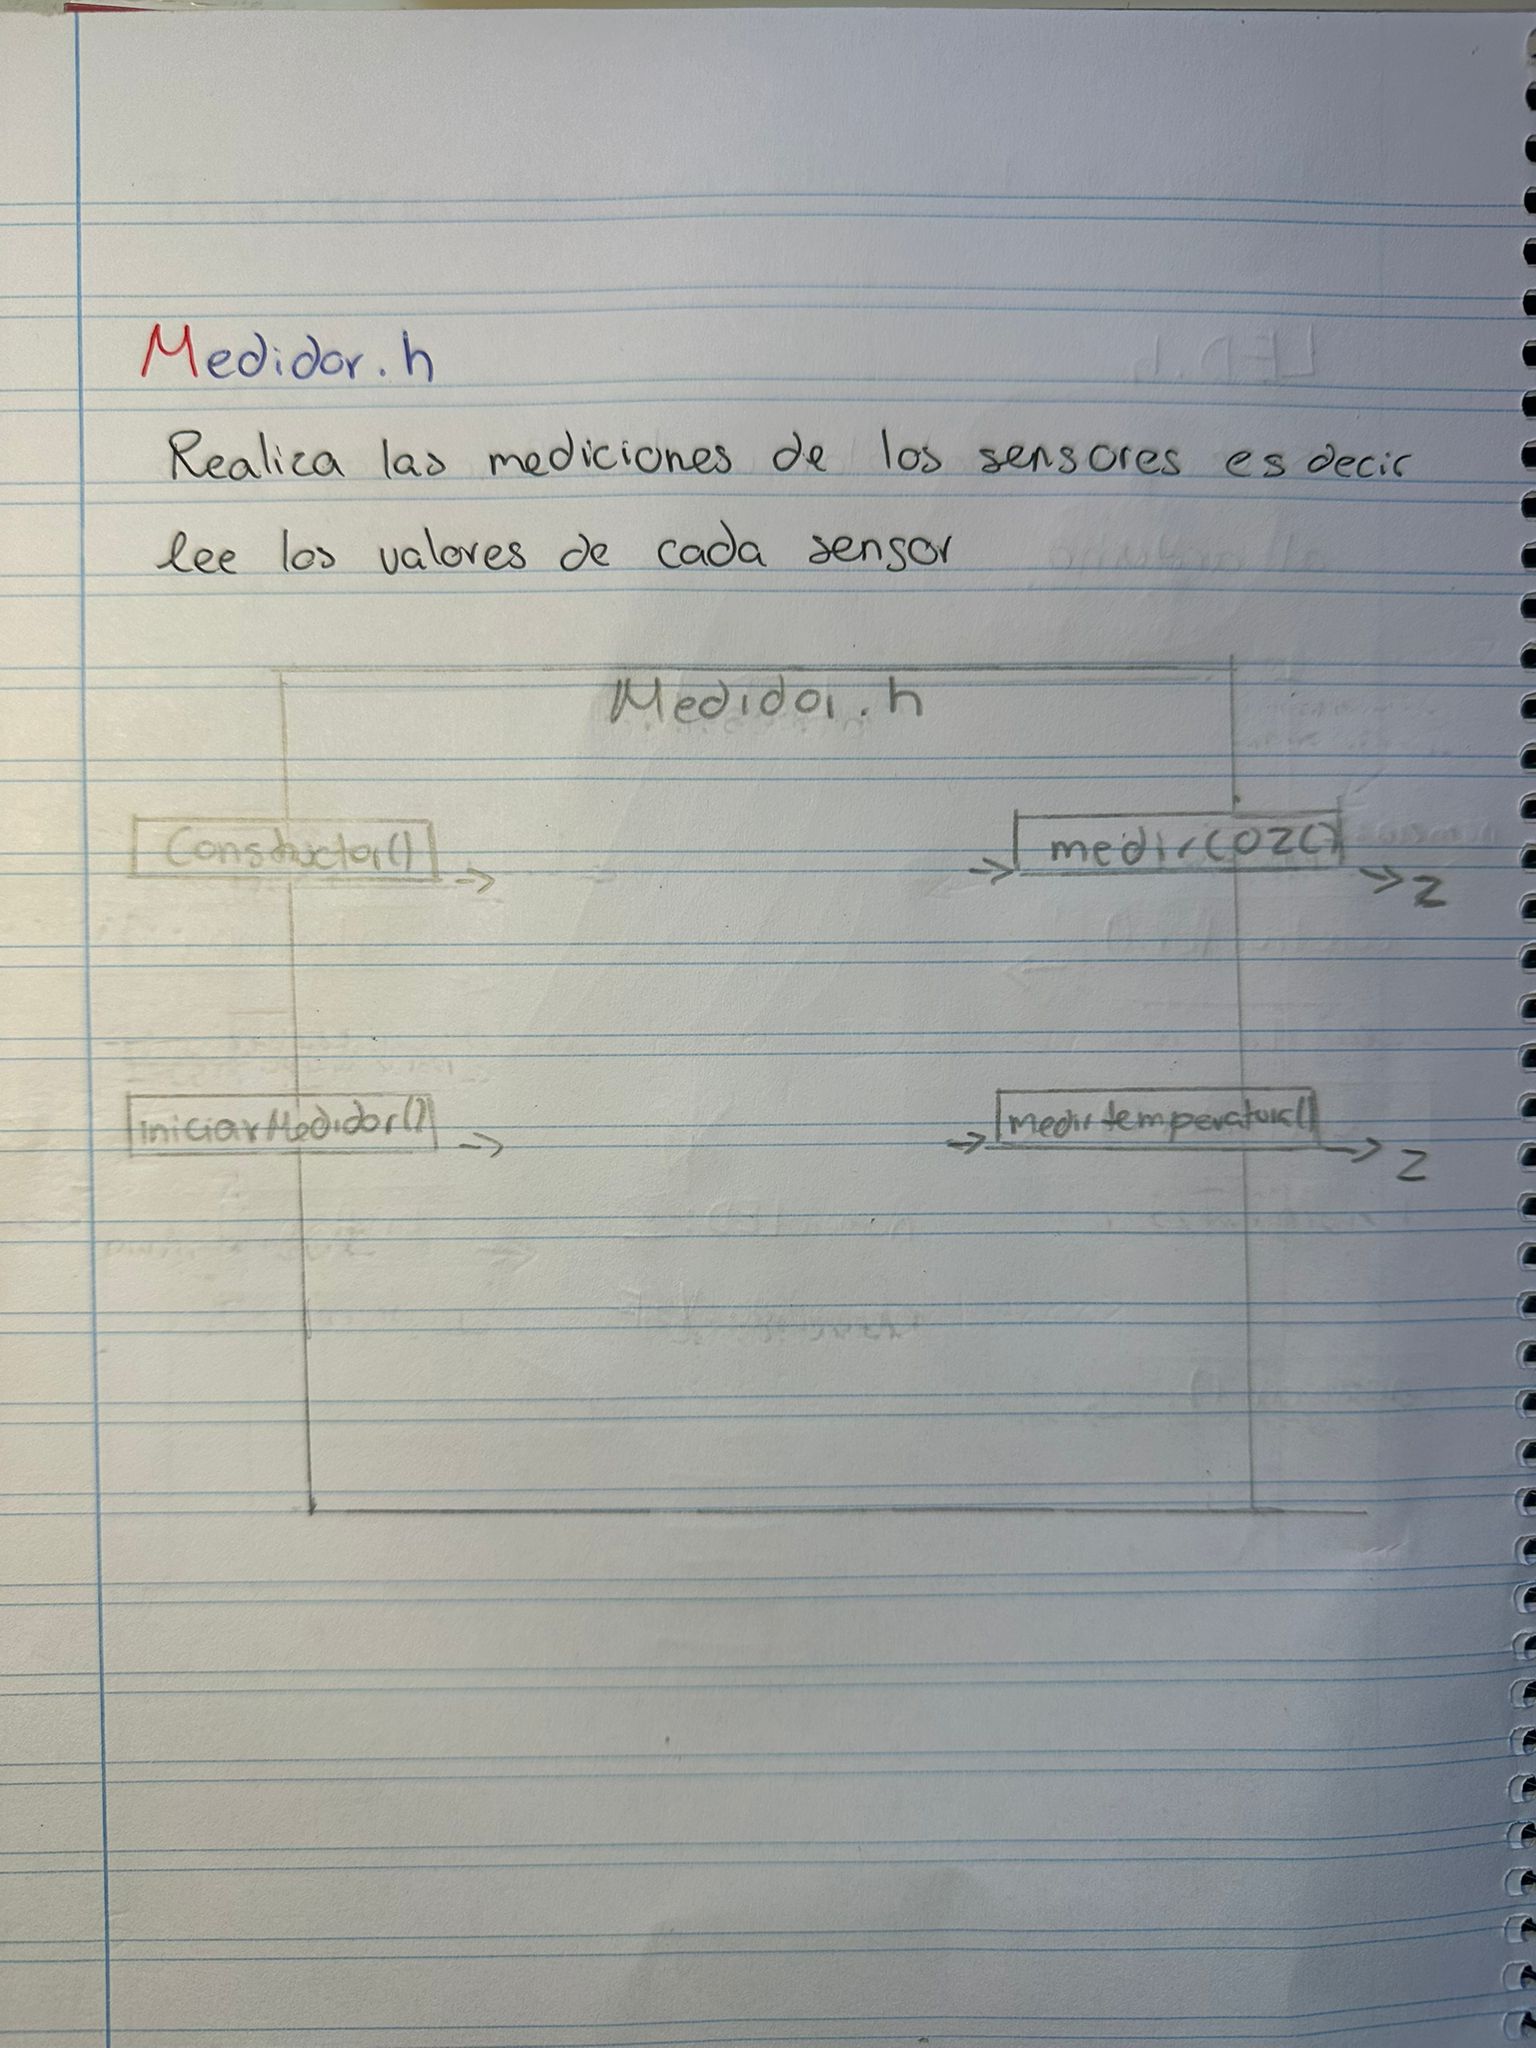 Medidor.h
Realiza las mediciones de los sensores es decir
lee los valores de cada sensor
Medidor.h
Constructor()
medirCO2()
Z
iniciarMedidor()
medirtemperatura()
Z